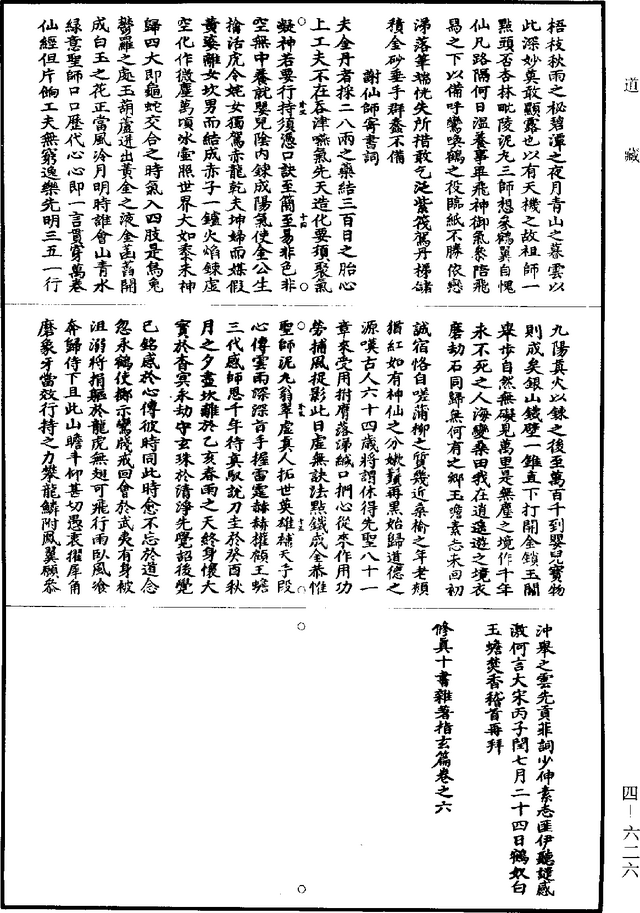 道藏
梧枝秋雨之秘碧潭之夜月青山之暮雲以
此深妙莫敢顯露也以有天機之故祖師一
點頭否杏林毗陵泥丸三師想參鶴翼自愧
仙凡路隔何日溫養事畢飛神御氣參陪飛
舄之下以備呼鸞喚鶴之役臨紙不勝依戀
涕落筆端恍失所措敢乞泛紫筏駕丹梯儲
積金砂垂手群蠢不備
謝仙師寄書詞
夫金丹者採二八兩之藥結三百日之胎心
上工夫不在吞津嚥氣先天造化要須聚氣
凝神若要行持須憑口訣至簡至易非色非
空無中養就嬰兒陰內鍊成陽氣使金公生
擒活虎令姹女獨駕赤龍乾夫坤婦而媒假
黃婆離女坎男而結成赤子一鑪火焰鍊虛
空化作微塵萬頃冰壺照世界大如黍米神
歸四大即龜蛇交合之時氣入四肢是烏兔
鬱羅之處玉葫蘆迸出黃金之液金菡萏開
成白玉之花正當風冷月明時誰會山青水
綠意聖師口口歷代心心即一言貫穿萬卷
仙經但片餉工夫無窮逸樂先明三五一行
九陽真火以鍊之後至萬百千到嬰兒寶物
則成矣銀山鐵壁一錐直下打開金鎖玉關
舉步自然無礙見萬里是無塵之境作千年
未不死之人海變桑田我在逍遙遊之境衣
磨劫石同歸無何有之鄉玉蟾素志未回初
誠宿恪自嗟蒲柳之質幾近桑榆之年老頰
猶紅如有神仙之分嫩鬚再黑始歸道德之
源嘆古人六十四歲將謂休得先聖八十一
章來受用拊膺落涕緘口捫心從來作用功
勞捕風捉影此日虛無訣法點鐵成金恭惟
聖師泥丸翁翠虛真人拓世英雄補天手段
心傳雲雨深深旨手握雷霆赫赫權顧玉蟾
三代感師恩千年待真馭說刀圭於癸酉秋
月之夕盡坎離於乙亥春雨之天終身懷大
寶於杳冥永劫守玄珠於清淨先覺詔後覺
已銘感於心傳彼時同此時愈不忘於道念
忽承鶴使擲示鸞牋戒回會於武夷有身被
沮溺將捐軀於龍虎無翅可飛行雨臥風飡
奔歸侍下且此山瞻斗仰甚切愚衷擢犀角
磨象牙當效行持之力攀龍鱗附鳳翼願參
沖舉之雲先貢菲詞少伸素志匪伊聽譴感
激何言大宋丙子閏七月二十四日鶴奴白
玉蟾焚香稽首再拜
修真十書雜著指玄篇卷之六
四—六二六